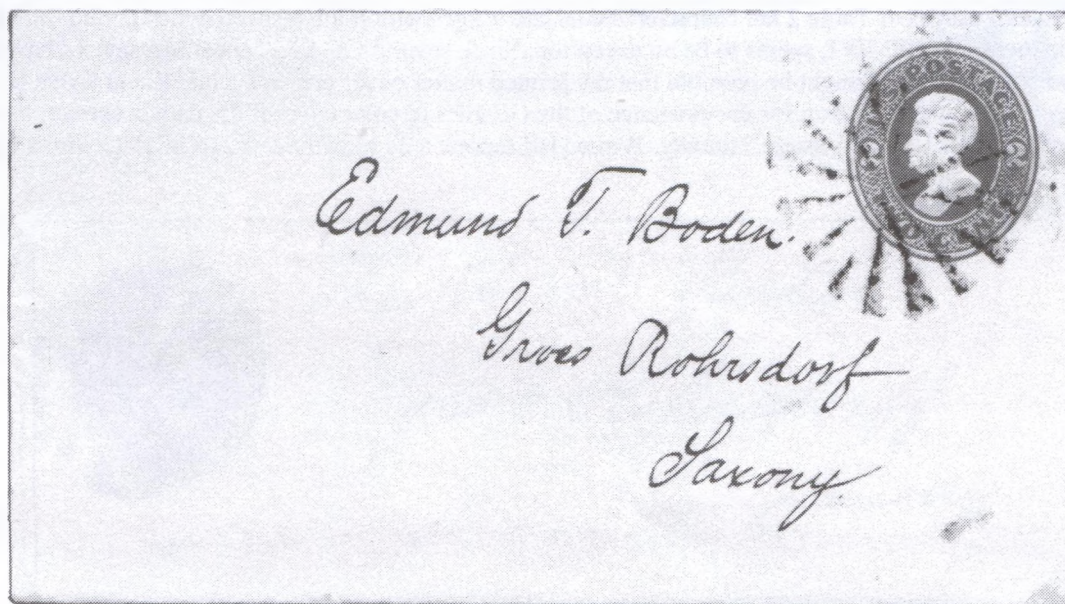 U.S. POSTAGE
TWO CENTS
2 2
Edmund T. Boden.
Gross Rohrsdorf
Saxony.